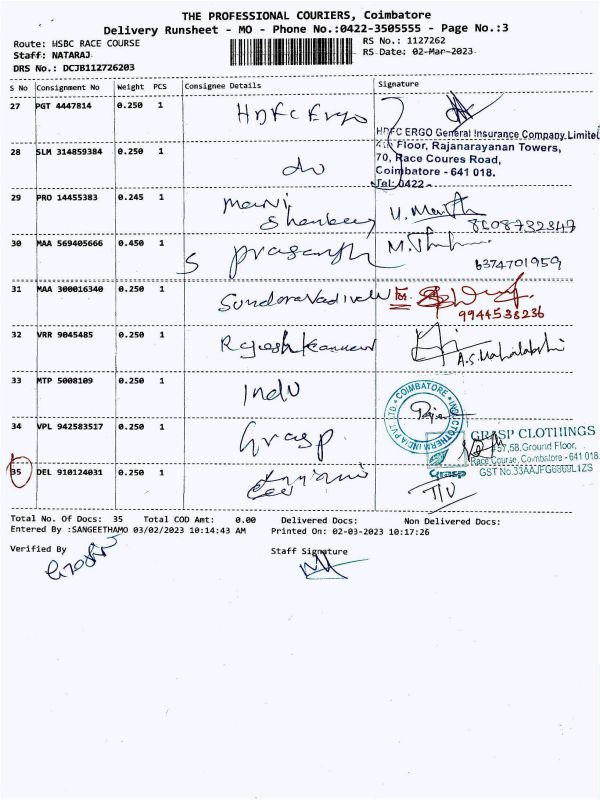 THE PROFESSIONAL COURIERS, Coimbatore
Delivery Runsheet - MO - Phone No.:0422-3505555 - Page No.:3
Route: HSBC RACE COURSE
RS No.: 1127262
Staff: NATARAJ
RS Date: 02-Mar-2023
DRS No.: DCJB112726203
S No Consignment No Weight PCS Consignee Details Signature
27 PGT 4447814 0.250 1 HDFC Ergo
HDFC ERGO General Insurance Company Limited
4th Floor, Rajanarayanan Towers,
28 SLM 314859384 0.250 1 do
70, Race Coures Road,
Coimbatore - 641 018.
Tel: 0422 -
29 PRO 14455383 0.245 1 Mani
8608732347
30 MAA 569405666 0.450 1 S Prasanth
6374701959
31 MAA 300016340 0.250 1 Sundaravadivelu For
9944538236
32 VRR 9045485 0.250 1
A.S. Mahalakshi
33 MTP 5008109 0.250 1 Indu
COIMBATORE * INDUCTOTHERM INDIA PVT. LTD *
34 VPL 942583517 0.250 1 Grasp
GRASP CLOTHINGS
#57,58,Ground Floor,
Race Course, Coimbatore - 641 018.
Grasp
GST No.33AAJFG6869L1ZS
35 DEL 910124031 0.250 1
Total No. Of Docs: 35 Total COD Amt: 0.00 Delivered Docs: Non Delivered Docs:
Entered By :SANGEETHAMO 03/02/2023 10:14:43 AM Printed On: 02-03-2023 10:17:26
Verified By Staff Signature